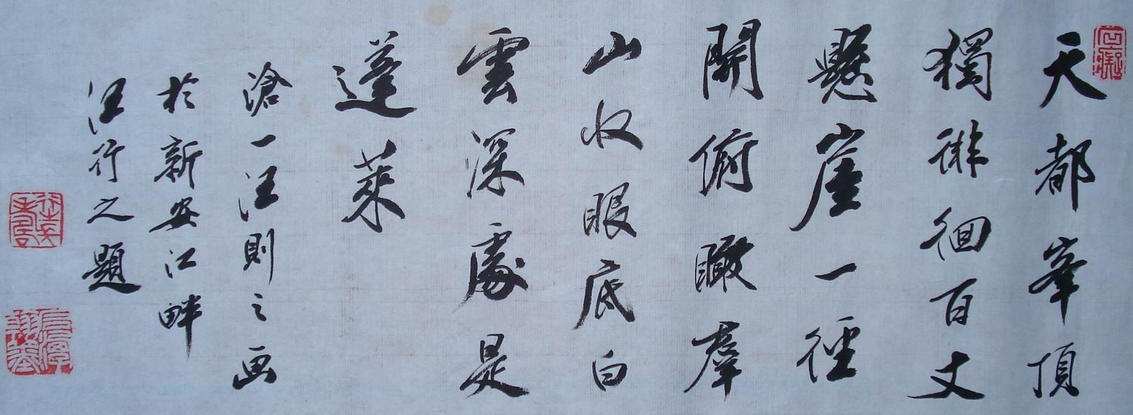 天都峯頂
獨徘徊百丈
懸崖一徑
開俯瞰群
山收眼底白
雲深處是
蓬萊
滄一汪則之画
於新安江畔
汪行之題